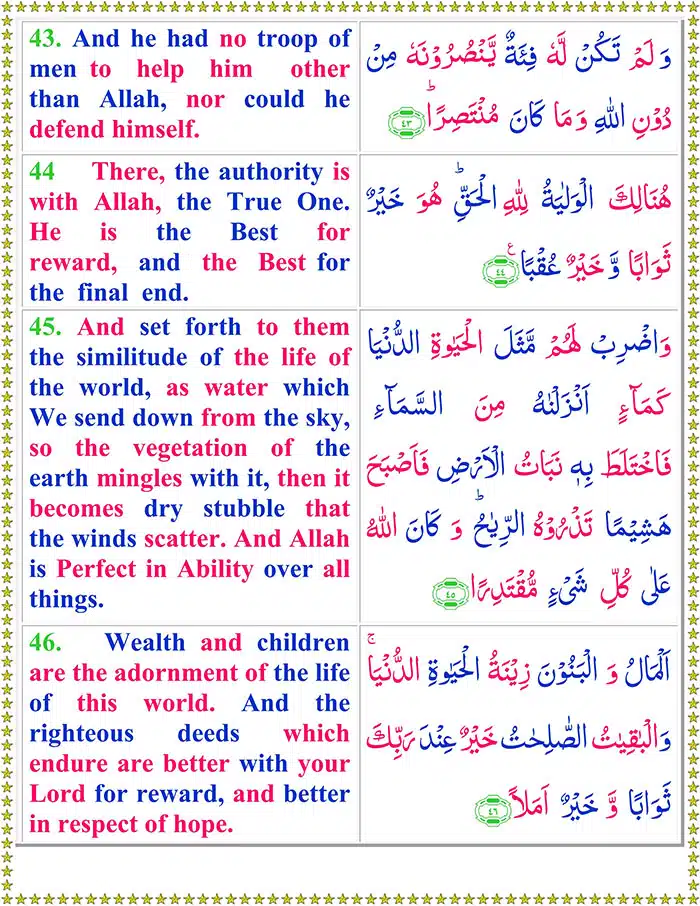 43. And he had no troop of
men to help him other
than Allah, nor could he
defend himself.
وَ لَمْ تَكُنْ لَّهٗ فِئَةٌ يَّنْصُرُوْنَهٗ مِنْ
دُوْنِ اللّٰهِ وَ مَا كَانَ مُنْتَصِرًاؕ ۴۳
44 There, the authority is
with Allah, the True One.
He is the Best for
reward, and the Best for
the final end.
هُنَالِكَ الْوَلَایَةُ لِلّٰهِ الْحَقِّؕ هُوَ خَیْرٌ
ثَوَابًا وَّ خَیْرٌ عُقْبًا۠ ۴۴
45. And set forth to them
the similitude of the life of
the world, as water which
We send down from the sky,
so the vegetation of the
earth mingles with it, then it
becomes dry stubble that
the winds scatter. And Allah
is Perfect in Ability over all
things.
وَاضْرِبْ لَهُمْ مَّثَلَ الْحَیٰوةِ الدُّنْیَا
كَمَآءٍ اَنْزَلْنٰهُ مِنَ السَّمَآءِ
فَاخْتَلَطَ بِهٖ نَبَاتُ الْاَرْضِ فَاَصْبَحَ
هَشِیْمًا تَذْرُوْهُ الرِّیٰحُؕ وَ كَانَ اللّٰهُ
عَلٰی كُلِّ شَیْءٍ مُّقْتَدِرًا ۴۵
46. Wealth and children
are the adornment of the life
of this world. And the
righteous deeds which
endure are better with your
Lord for reward, and better
in respect of hope.
اَلْمَالُ وَ الْبَنُوْنَ زِیْنَةُ الْحَیٰوةِ الدُّنْیَاۚ
وَالْبٰقِیٰتُ الصّٰلِحٰتُ خَیْرٌ عِنْدَ رَبِّكَ
ثَوَابًا وَّ خَیْرٌ اَمَلًا ۴۶